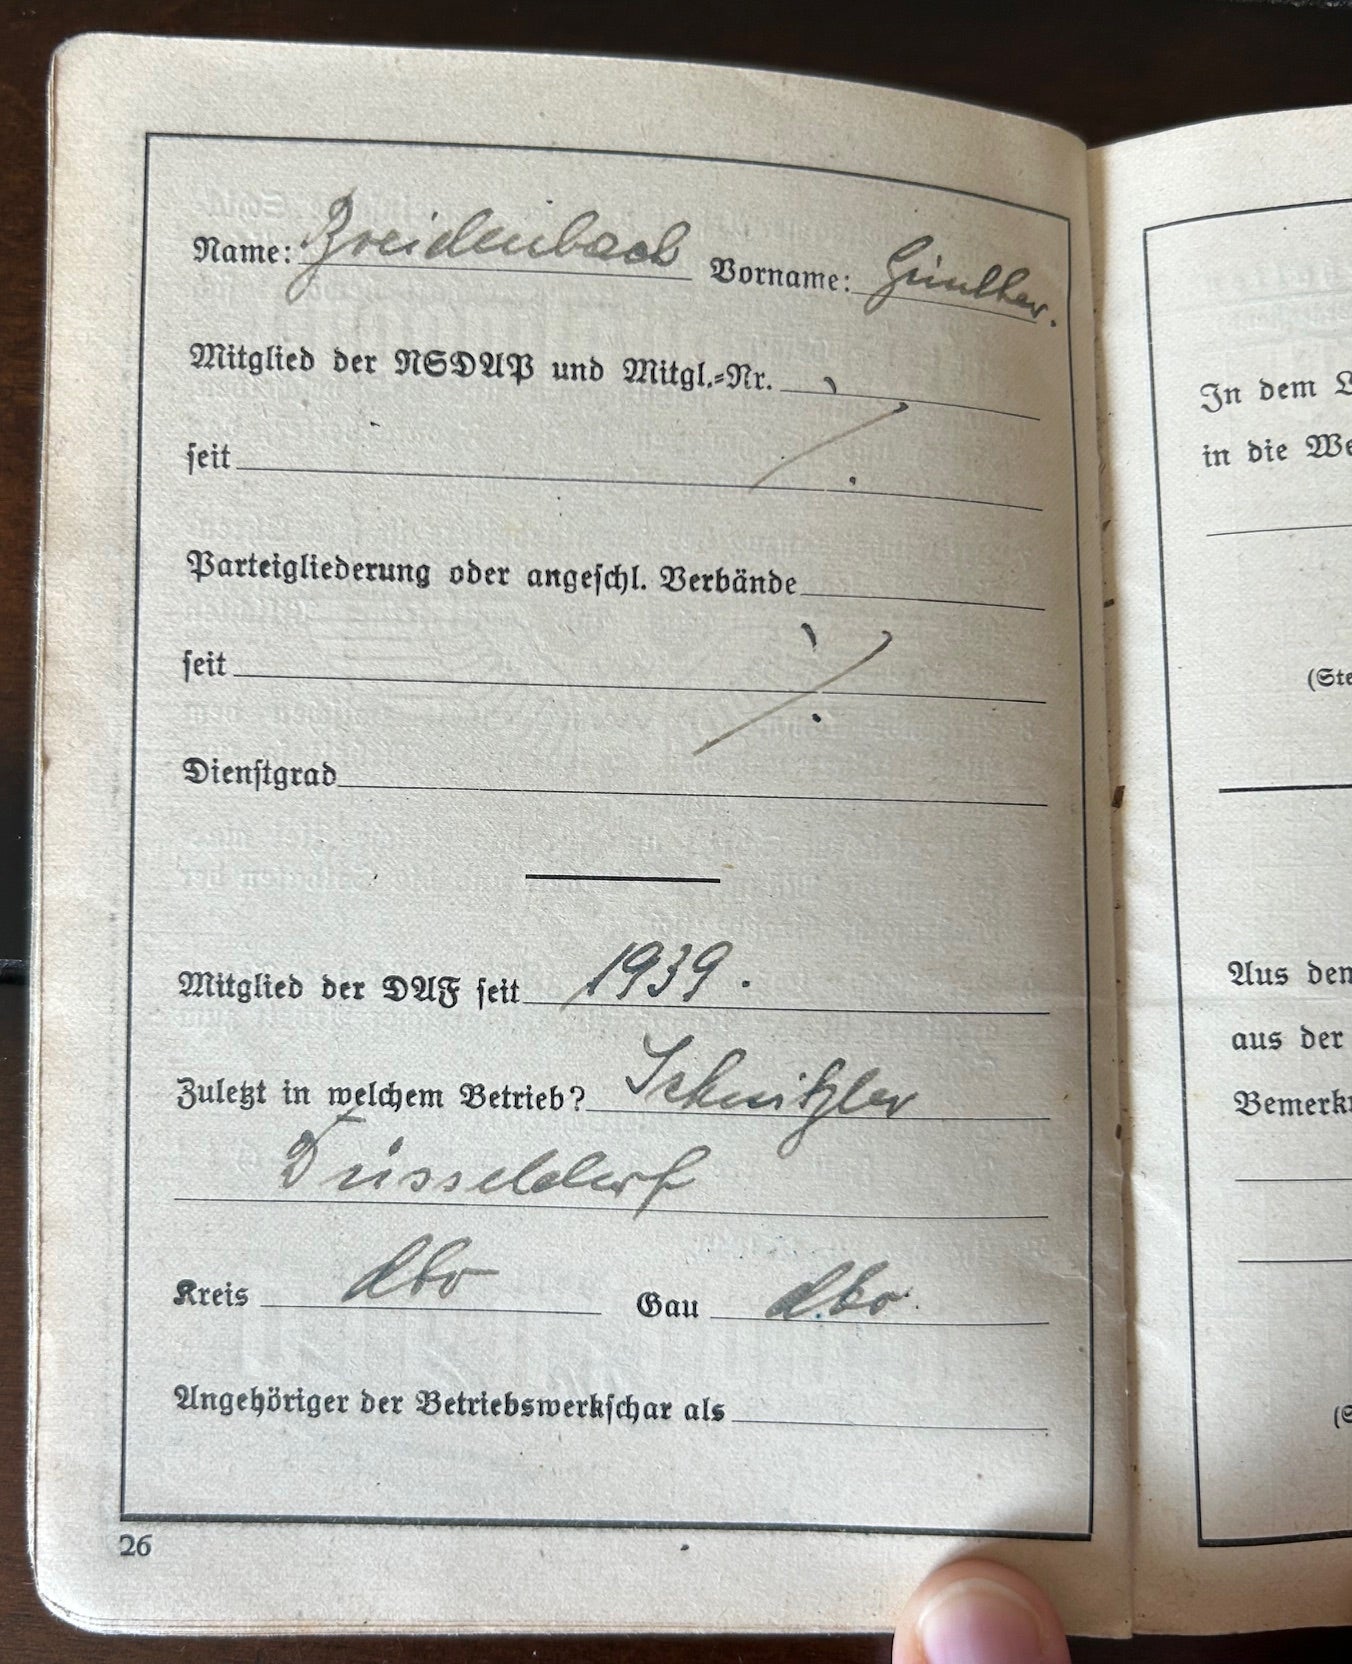 Name: Breidenbach Vorname: Günther.
Mitglied der NSDAP und Mitgl.-Nr.
seit ./.
Parteigliederung oder angeschl. Verbände
seit ./.
Dienstgrad
Mitglied der DAF seit 1939.
Zuletzt in welchem Betrieb? Schnitzler
Düsseldorf
Kreis dto Gau dto.
Angehöriger der Betriebswerkschar als
26
In dem
in die
(Ste
Aus den
aus der
Bemerk